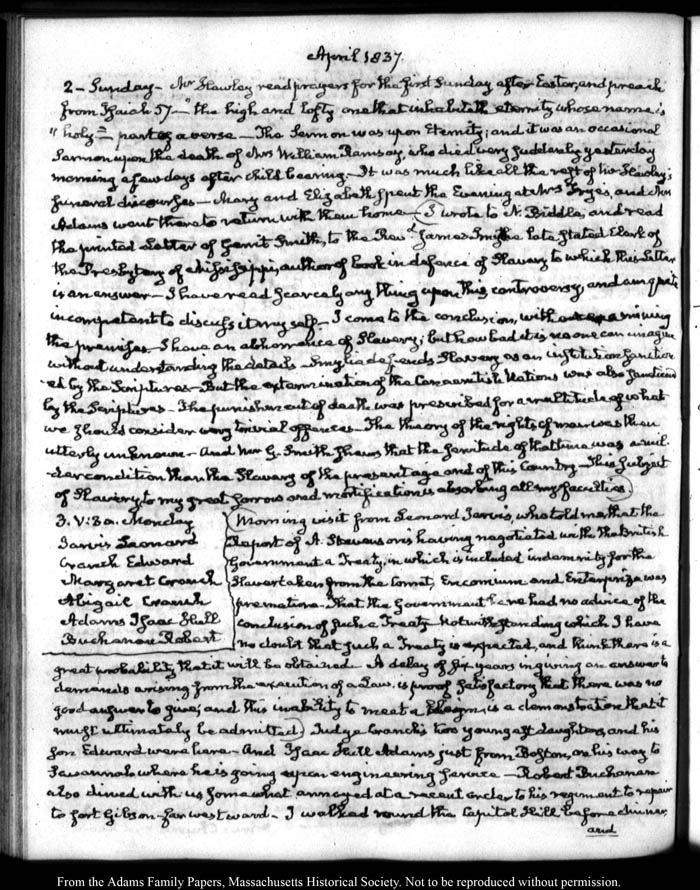 April 1837.
2 - Sunday - Mr Hawley read prayers for the first Sunday after Easter, and preach
from Isaiah 57. - "the high and lofty one that inhabiteth eternity whose name is
"holy" - part of a verse - The Sermon was upon Eternity; and it was an occasional
Sermon upon the death of Mrs William Ramsay, who died very suddenly yesterday
morning a few days after child bearing - It was much like all the rest of Mr Hawley's
funeral discourses - Mary and Elizabeth spent the Evening at Mrs Frye's, and Mrs
Adams went there to return with them home - (I wrote to N. Biddle, and read
the printed Letter of Gerrit Smith, to the Revd James Smylie late Stated Clerk of
the Presbytery of Mississippi, author of book in defence of Slavery to which this Letter
is an answer - I have read scarcely any thing upon this controversy, and am quite
incompetent to discuss it myself - I come to the conclusion, without examining
the premises. I have an abhorrence of Slavery; but how bad it is no one can imagine
without understanding the details - Smylie defends Slavery as an institution sanction
-ed by the Scriptures - But the extermination of the Canaanitish Nations was also sanctioned
by the Scriptures - The punishment of death was prescribed for a multitude of what
we should consider very trivial offences - The theory of the rights of man was then
utterly unknown - And Mr G. Smith shews that the servitude of that time was a mil-
-der condition than the Slavery of the present age and of this Country - This subject
of Slavery to my great sorrow and mortification is absorbing all my faculties.)
3. V: 30. Monday
Jarvis Leonard
Cranch Edward
Margaret Cranch
Abigail Cranch
Adams Isaac Hull
Buchanan Robert
(Morning visit from Leonard Jarvis, who told me that the
Report of A. Stevensons having negotiated with the British
Government a Treaty, in which is included indemnity for the
Slaves taken from the Comet, Encomium and Enterprize was
premature - That the Government here had no advice of the
conclusion of such a Treaty. Notwithstanding which I have
no doubt that such a Treaty is expected, and think there is a
great probability that it will be obtained. A delay of six years in giving an answer to
demands arising from the execution of a Law, is proof satisfactory that there was no
good answer to give; and this inability to meet a claim, is a demonstration that it
must ultimately be admitted.) Judge Cranch's two youngest daughters, and his
son Edward were here - And Isaac Hull Adams just from Boston, on his way to
Savannah where he is going upon engineering service - Robert Buchanan
also dined with us somewhat annoyed at a recent order to his regiment to repair
to fort Gibson - far westward - I walked round the Capitol Hill before dinner,
and
From the Adams Family Papers, Massachusetts Historical Society. Not to be reproduced without permission.